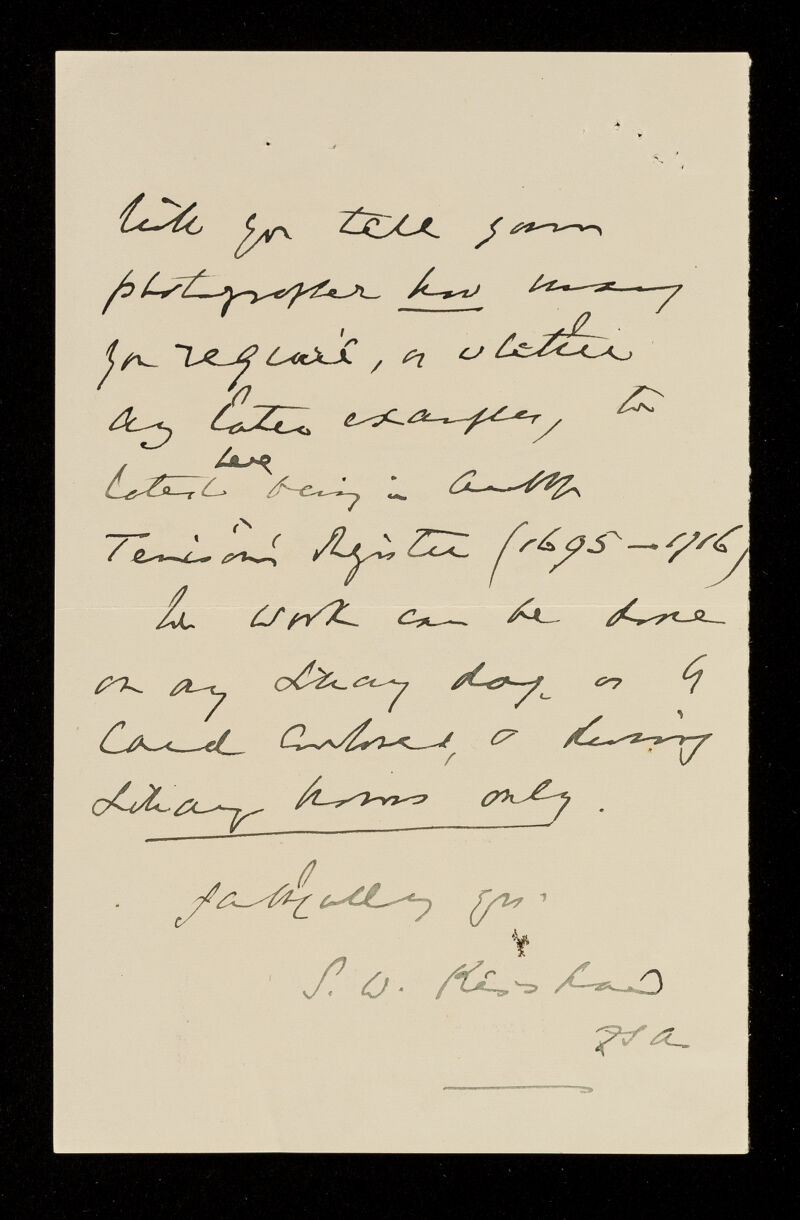 Will you tell your
photographer how many
you require, or whether
any later examples, the
latest here being in Archbp
Tenison's Register (1695–1716)
The work can be done
on any Library day, as by
Card enclosed, & during
Library hours only.
Faithfully yrs.
S. W. Kershaw
FSA